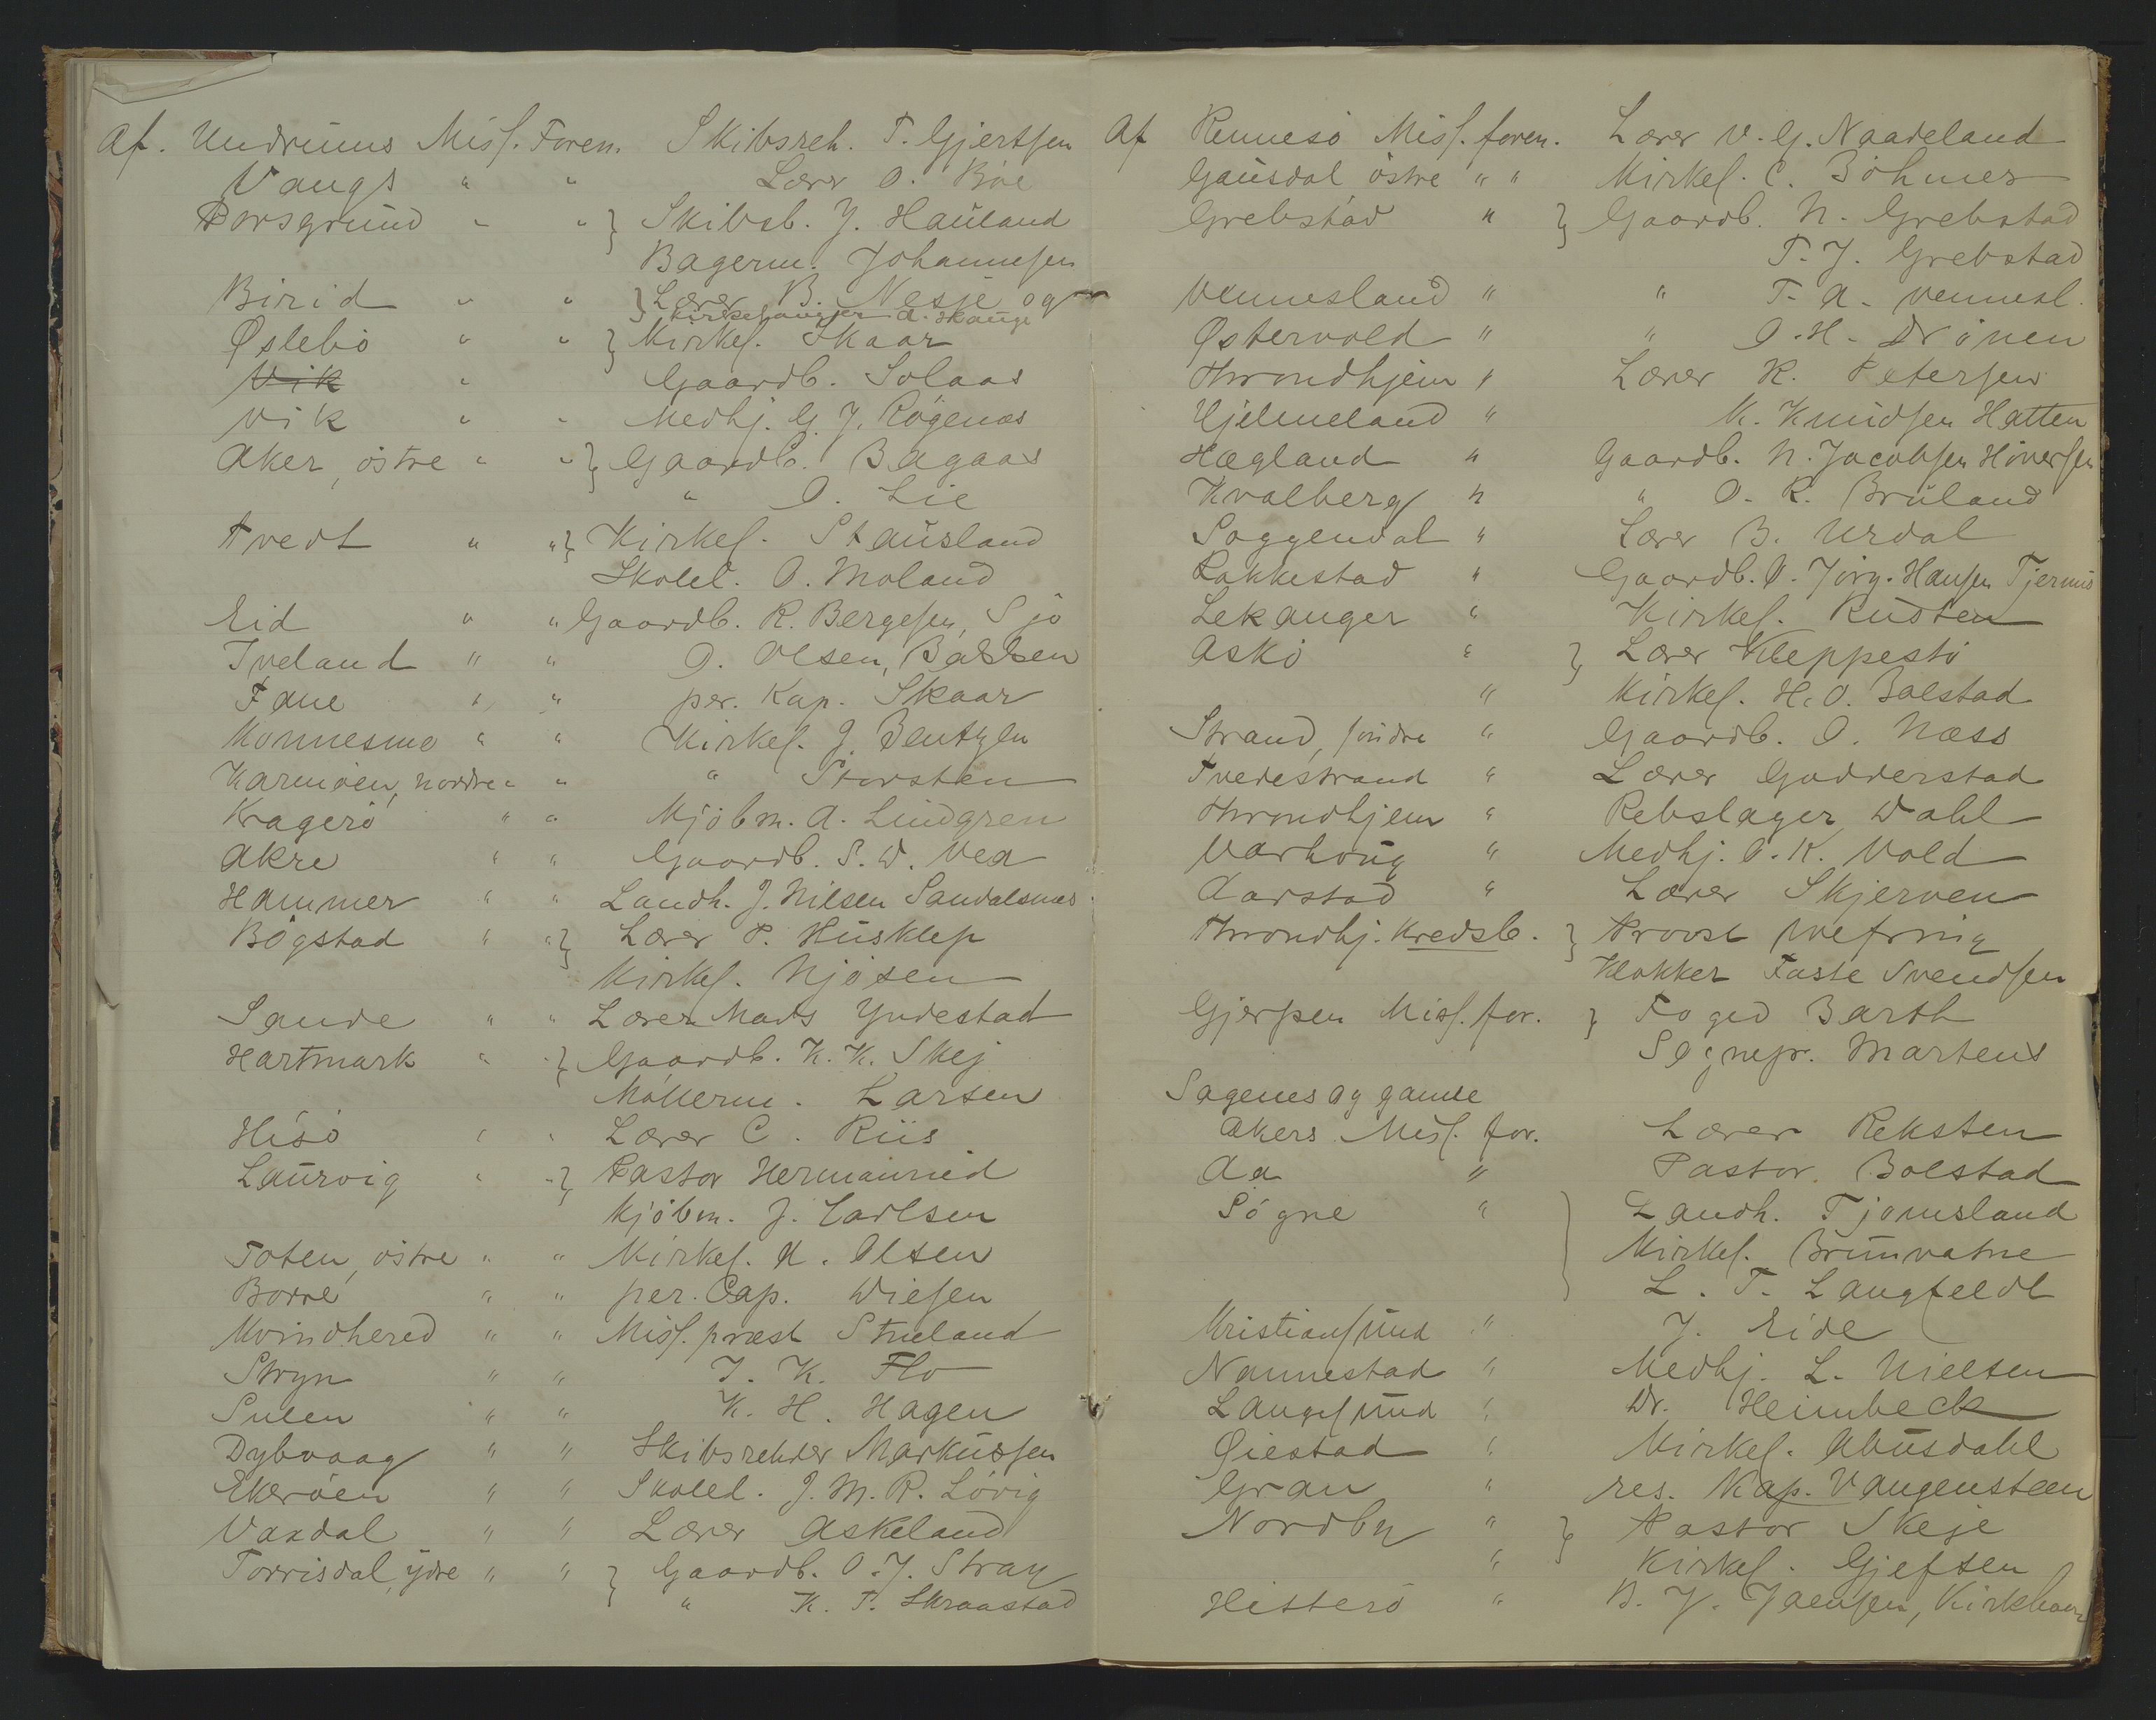 Af. Undrums Miss. Foren. Skibsreh. T. Gjertsen
Vangs " " Lærer O. Böe
Porsgrund " " } Skibsb. J. Hauland
Bagerm. Johannesen
Birid " " } Lærer B. Nesje og
Kirkesanger A. Skauge
Øslebö " " } Kirkes. Skaar
Vik " Gaardb. Solaas
Vik " " Medhj. G. J. Rögenæs
Aker, östre " " } Gaardb. Bagaas
" O. Lie
Tvedt " " } Kirkes. Stausland
Skolel. O. Moland
Eid " " Gaardb. R. Bergesen, Sjo
Iveland " " O. Olsen, Bakken
Fane " " per. Kap. Skaar
Konnesmo " " Kirkes. J. Bentzen
Karmöen, nordre " " " Storsten
Kragerö " " Kjöbm. A. Lindgren
Akre " " Gaardb. S. W. Vea
Hammer " " Landh. J. Nilsen Sandalsnæs
Bögstad " " } Lærer P. Husklep
Kirkes. Njösen
Sande " " Lærer Mads Yndestad
Hartmark " " } Gaardb. K. K. Skej
Möllerm. Larsen
Hisö " " Lærer C. Riis
Laurvig " " } Pastor Hermanrud
Kjöbm. J. Carlsen
Toten, östre " " Kirkes. N. Olsen
Borre " " per. Cap. Wiesen
Kvindhered " " Miss. præst Stueland
Stryn " " I. K. Flo
Sulen " " K. H. Hagen
Dybvaag " " Skibsrehder Markussen
Ekeröen " " Skolel. J. M. R. Lövig
Vaxdal " " Lærer Askeland
Torrisdal, ydre " " } Gaardb. O. J. Stray
" K. T. Skraastad
Af Rennesö Miss. foren. Lærer V. G. Naadeland
Gausdal, östre " " Kirkes. C. Böhmer
Grebstad " } Gaardb. N. Grebstad
T. J. Grebstad
Vennesland " " T. A. Vennesl.
Østervold " " O. H. Drönen
Throndhjem " Lærer K. Petersen
Hjelmeland " K. Knudsen Hatten
Hægland " Gaardb. N. Jacobsen Hinersen
Kvalberg " " O. R. Bruland
Soggendal " Lærer B. Urdal
Rakkestad " Gaardb. O. Jörg. Hansen Tjernæs
Lekanger " Kirkes. Rusten
Askö " } Lærer Kleppestö
" Kirkes. H. O. Bolstad
Strand, söndre " Gaardb. O. Næss
Tvedestrand " Lærer Godderstad
Throndhjem " Rebslager Wahl
Varhoug " Medhj. O. K. Vold
Aarstad " Lærer Skjerven
Throndhj. Kredsb. } Provst Wefring
Klokker Faste Svendsen
Gjerpen Miss. for. } Foged Barth
Sognepr. Martens
Sagenes og gamle
Akers Miss. for. Lærer Reksten
Aa " Pastor Bolstad
Sögne " } Landh. Tjomsland
Kirkes. Brunvatne
L. T. Langfeldt
Kristianssund " J. Eide
Nannestad " Medhj. L. Nielsen
Langesund " Dr. Heimbeck
Øiestad " Kirkes. Abusdahl
Gran " res. Kap. Vangensteen
Nordby " } Pastor Skeje
" Kirkes. Gjefsen
Hitterö " B. J. Jaensen, Kirkhavn